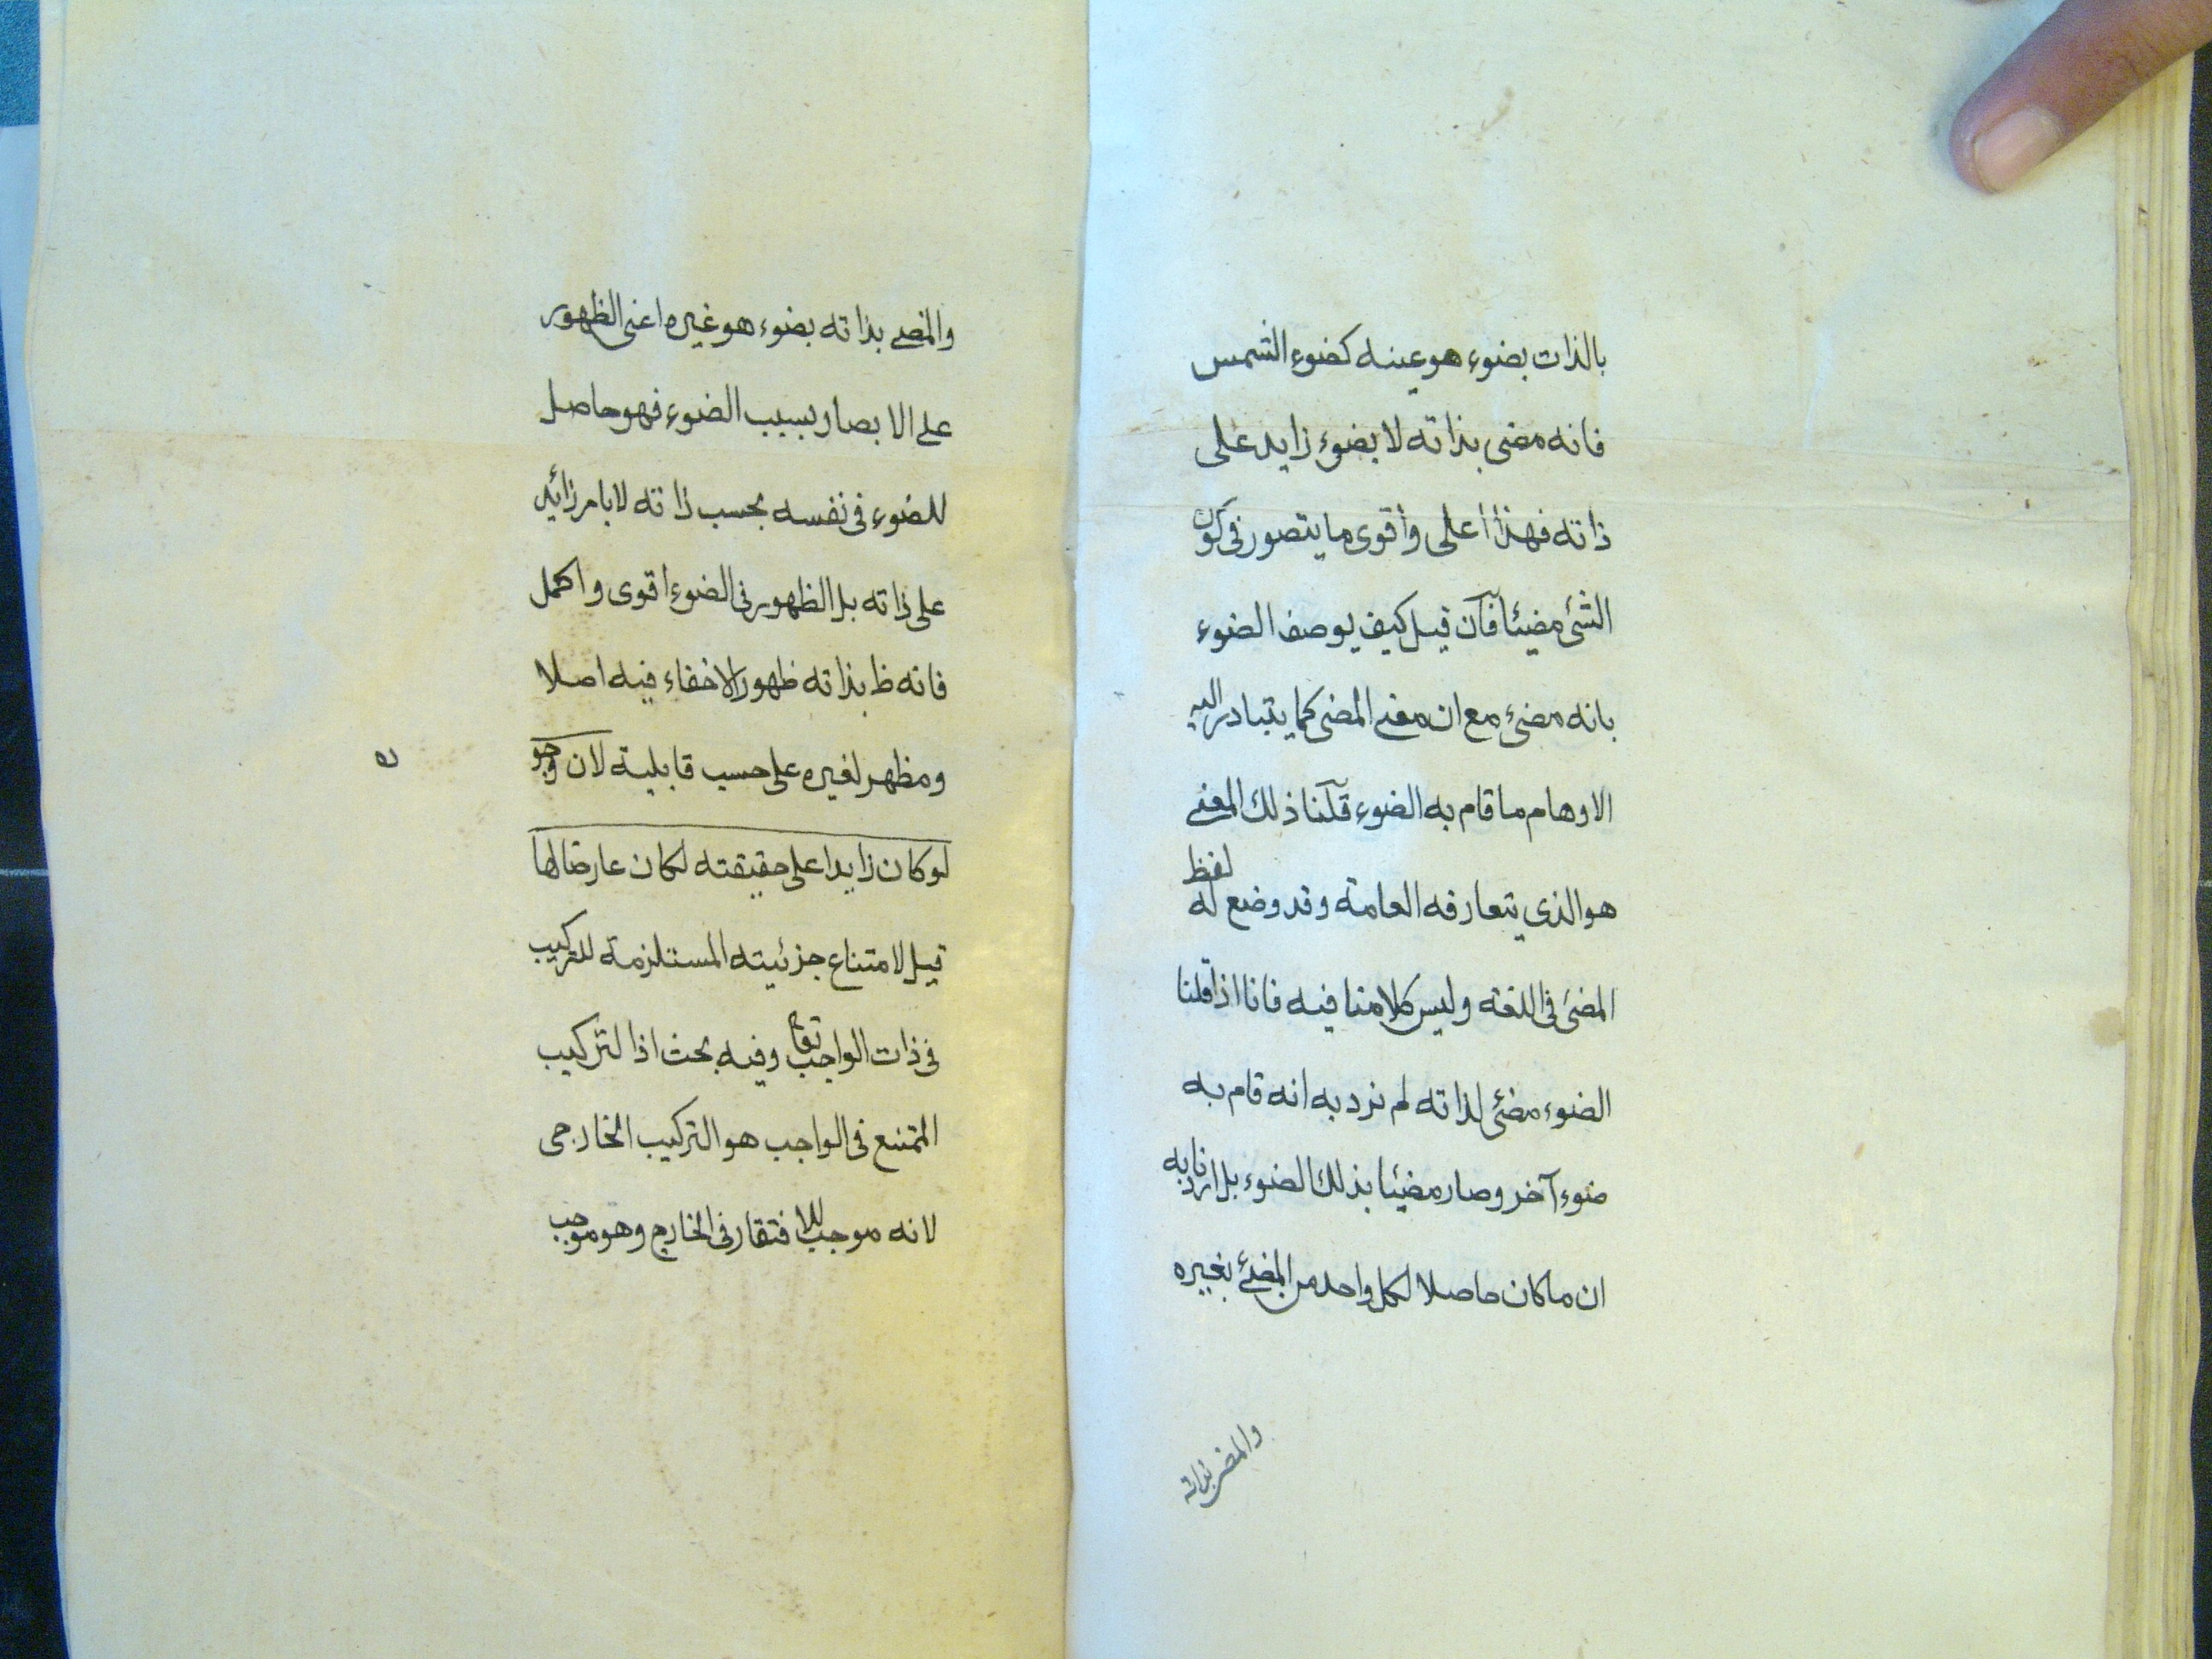 بالذات بضوء هو عينه كضوء الشمس
فانه مضئ بذاته لا بضوء زايد على
ذاته فهذا أعلى وأقوى ما يتصور فى كون
الشئ مضيئا فآن قيل كيف يوصف الضوء
بانه مضئ مع ان معنى المضئ كما يتبادر اليه
الاوهام ما قام به الضوء قلنا ذلك المعنى
هو الذى يتعارفه العامة وقد وضع له لفظ
المضئ فى اللغة وليس كلامنا فيه فانا اذا قلنا
الضوء مضئ لذاته لم نرد به انه قام به
ضوء آخر وصار مضيئا بذلك الضوء بل اردنا به
ان ما كان حاصلا لكل واحد من المضئ بغيره
والمضئ بذاته
والمضئ بذاته بضوء هو غيره اعنى الظهور
على الابصار بسبب الضوء فهو حاصل
للضوء فى نفسه بحسب ذاته لا بامر زائد
على ذاته بل الظهور فى الضوء اقوى واكمل
فانه ظ بذاته ظهورا لاخفاء فيه اصلا
ومظهر لغيره على حسب قابلية لان وجو
ده
لو كان زايدا على حقيقته لكان عارضا لها
قيل لامتناع جزئيته المستلزمة للتركيب
فى ذات الواجب تعا وفيه بحث اذا لتركيب
الممتنع فى الواجب هو التركيب الخارجى
لانه موجب للافتقار فى الخارج وهو موجب